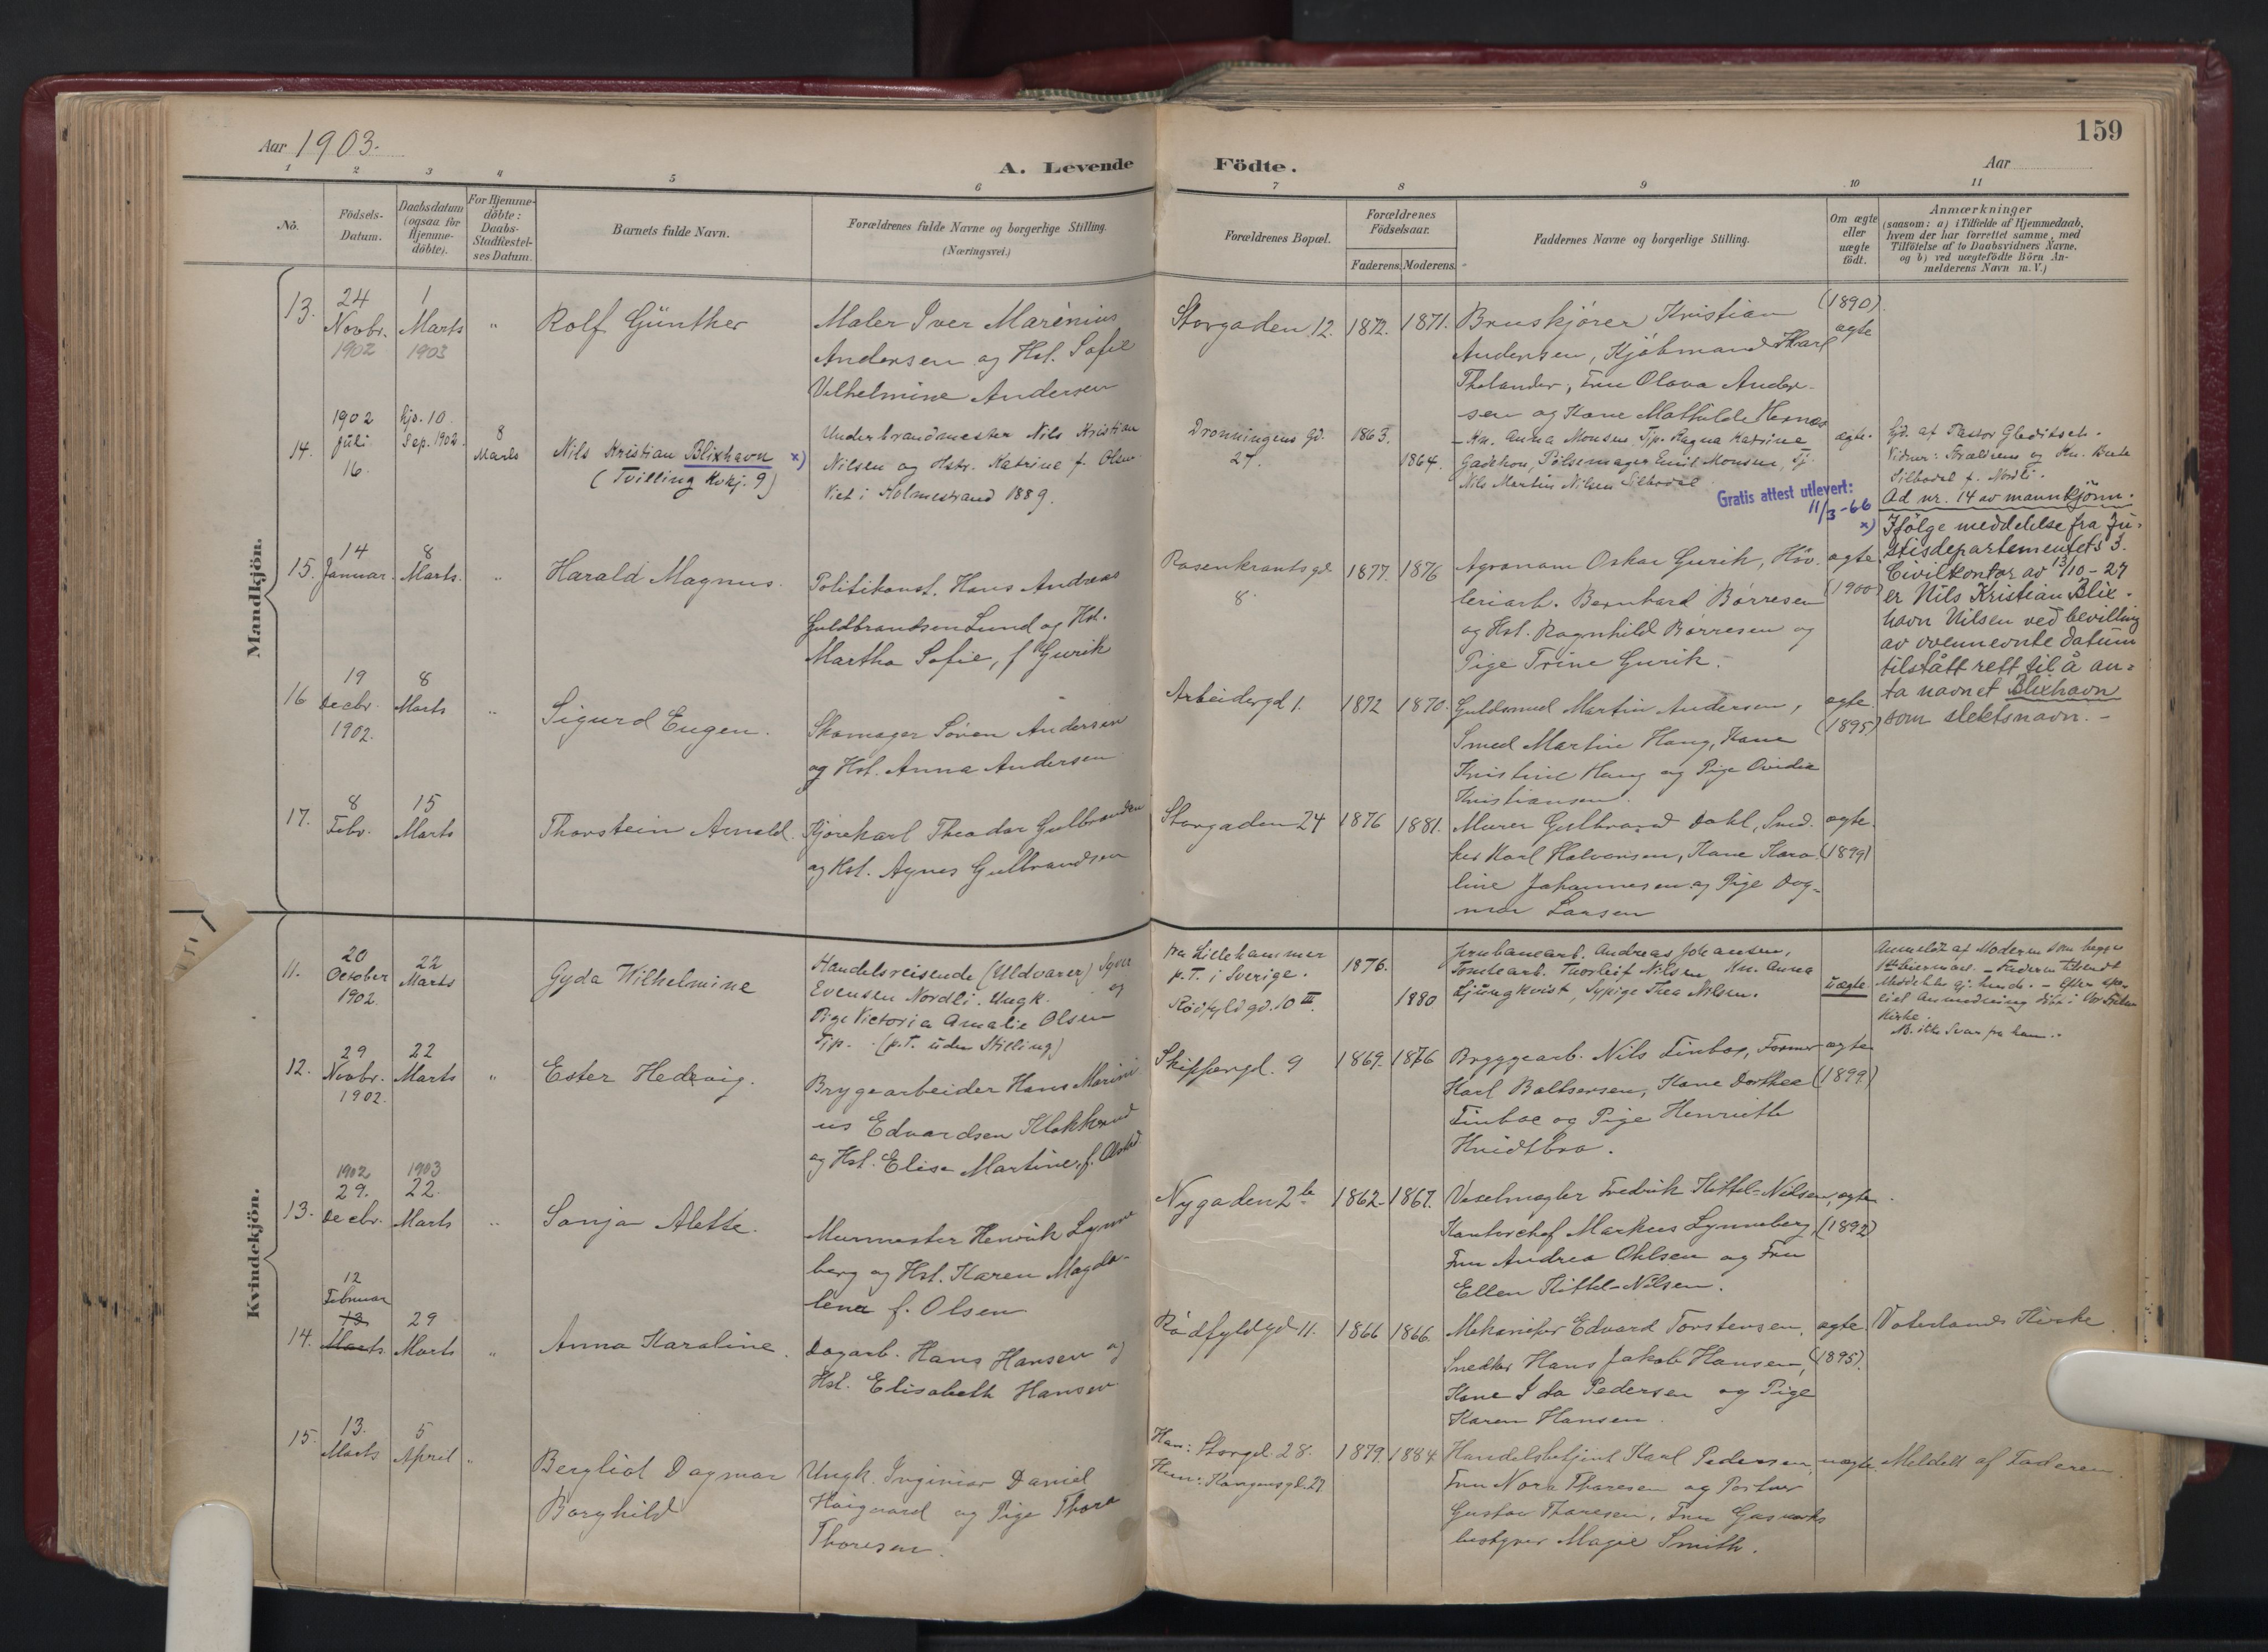 159
Aar 1903.
A. Levende Födte.
Aar
1 2 3 4 5 6 7 8 9 10 11
No.
Födsels-
Datum.
Daabsdatum
(ogsaa for
Hjemme-
döbte).
For Hjemme-
döbte:
Daabs-
Stadfæstel-
ses Datum.
Barnets fulde Navn.
Forældrenes fulde Navne og borgerlige Stilling.
(Næringsvei.)
Forældrenes Bopæl.
Forældrenes
Födselsaar.
Faderens. Moderens.
Faddernes Navne og borgerlige Stilling.
Om ægte
eller
uægte
födt.
Anmærkninger
(saasom: a) i Tilfælde af Hjemmedaab,
hvem der har forrettet samme, med
Tilföielse af to Daabsvidners Navne,
og b) ved uægtefödte Börn An-
melderens Navn m. V.)
Mandkjön.
13.
24
Novbr.
1902
1
Marts
1903
"
Rolf Günther
Maler Iver Marenius
Andersen og Hst. Sofie
Vilhelmine Andersen
Storgaden 12.
1872.
1871.
Bruskjører Kristian
Andersen, Kjøbmand Karl
Thelander, Fru Olava Ander-
sen og Kone Mathilde Hernæs
(1890)
ægte
14.
1902
Juli
16.
hjd. 10.
Sep. 1902.
8
Marts
Nils Kristian Blixhavn x)
(Tvilling Kvkj. 9)
Underbrandmester Nils Kristian
Nilsen og Hstr. Katrine f. Olsen
Viet i Holmestrand 1889.
Dronningens gd.
27.
1863.
1864.
Kn. Anna Monsen, Tjp. Ragna Katrine
Pølsemager Emil Monsen, Tj.
Nils Martin Nilsen Silbodal
ægte.
Hjd. af Pastor Gleditsch.
Vidner: Forældrene og Kn.
Silbodal f. Nordli.
Gratis attest utlevert:
11/3-66
Ad nr. 14 av mannkjønn.
x) Ifølge meddelelse fra Ju-
stisdepartementets 3.
Civilkontor av 13/10-27
er Nils Kristian Blix-
havn Nilsen ved bevilling
av ovennevnte datum
tilstått rett til å an-
ta navnet Blixhavn
som slektsnavn. -
15.
14
Januar.
8
Marts.
"
Harald Magnus.
Politikonst. Hans Andreas
Guldbrandsen Lund og Hst.
Martha Sofie, f Gurik
Rosenkrantsgd
8
1877.
1876
Agronom Oskar Gurik, Høv-
leriarb. Bernhard Børresen
og Hst. Ragnhild Børresen og
Pige Trine Gurik.
ægte
(1900)
16
19
Decbr.
1902.
8
Marts
"
Sigurd Eugen.
Skomager Søren Andersen
og Hst. Anna Andersen
Arbeidergd 1.
1872
1870.
Guldsmed Martin Andersen,
Smed Martin Haug, Kone
Kristine Haug og Pige Ovidia
Kristiansen.
ægte
(1895)
17.
8
Febr.
15
Marts
Thorstein Arnold.
Kjørekarl Theodor Gulbrandsen
og Hst. Agnes Gulbrandsen
Storgaden 24
1876
1881.
Murer Gulbrand Dahl, Sned-
ker Karl Halvorsen, Kone Karo-
line Johannesen og Pige Dag-
mar Larsen
ægte.
(1899)
Kvindekjön.
11.
20
October
1902.
22
Marts
Gyda Wilhelmine
Handelsreisende (Uldvarer) Syver
Evensen Nordli. Ungk. og
Pige Victoria Amalie Olsen
Tjp. (p.T. uden Stilling)
fra Lillehammer
p.T. i Sverige.
Rødfyldgd. 10 III.
1876.
1880
Jernbanearb. Andreas Johansen,
Tomtearb. Thorleif Nilsen, Kn. Anna
Ljungkvist, Sypige Thea Nilsen.
uægte
Anmeldt af Moderen som begges
Faderen tilsendt
Meddelelse
Kirke.
N. ikke Svar fra ham.
12.
29
Novbr.
1902.
22
Marts
"
Ester Hedevig.
Bryggearbeider Hans Marini-
us Edvardsen Klokkerud
og Hst. Elise Martine, f. Olstad
Skippergd. 9
1869.
1876
Bryggearb. Nils Finboe, Former
Karl Baltsersen, Kone Dorthea
Finboe og Pige Henriette
Hvidtbro.
ægte
(1899)
13.
1902
29.
Decbr.
1903
22
Marts
"
Sonja Alette.
Murmester Henrik Lynne-
berg og Hst. Karen Magda-
lena f. Olsen
Nygaden 2b
1862.
1867.
Vexelmægler Fredrik Kittel-Nilsen,
Kontorchef Markus Lynneberg,
Fru Andrea Ohlsen og Fru
Ellen Kittel-Nilsen.
ægte.
(1892)
14.
12
Februar
13
Marts.
29
Marts
"
Anna Karoline.
Dagarb. Hans Hansen og
Hst. Elisabeth Hansen
Rødfyldgd 11.
1866
1866.
Mekaniker Edvard Torstensen,
Snedker Hans Jakob Hansen,
Kone Ida Pedersen og Pige
Karen Hansen.
ægte
(1895).
Vaterlands Kirke
15.
13.
Marts
5
April
"
Bergliot Dagmar
Borghild
Ungk. Ingeniør Daniel
Haigaard og Pige Thora
Thoresen.
Han: Storgd. 28.
Hun: Kongensgd. 27
1879.
1884
Handelsbetjent Karl Pedersen,
Fru Nora Thoresen og Portner
Gustav Thoresen, Fru Gasværks
bestyrer Magie Smith.
uægte.
Meldelt af Faderen.